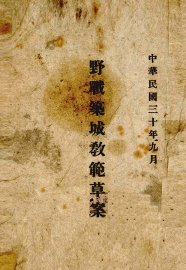 中華民國三十年九月
野戰築城教範草案